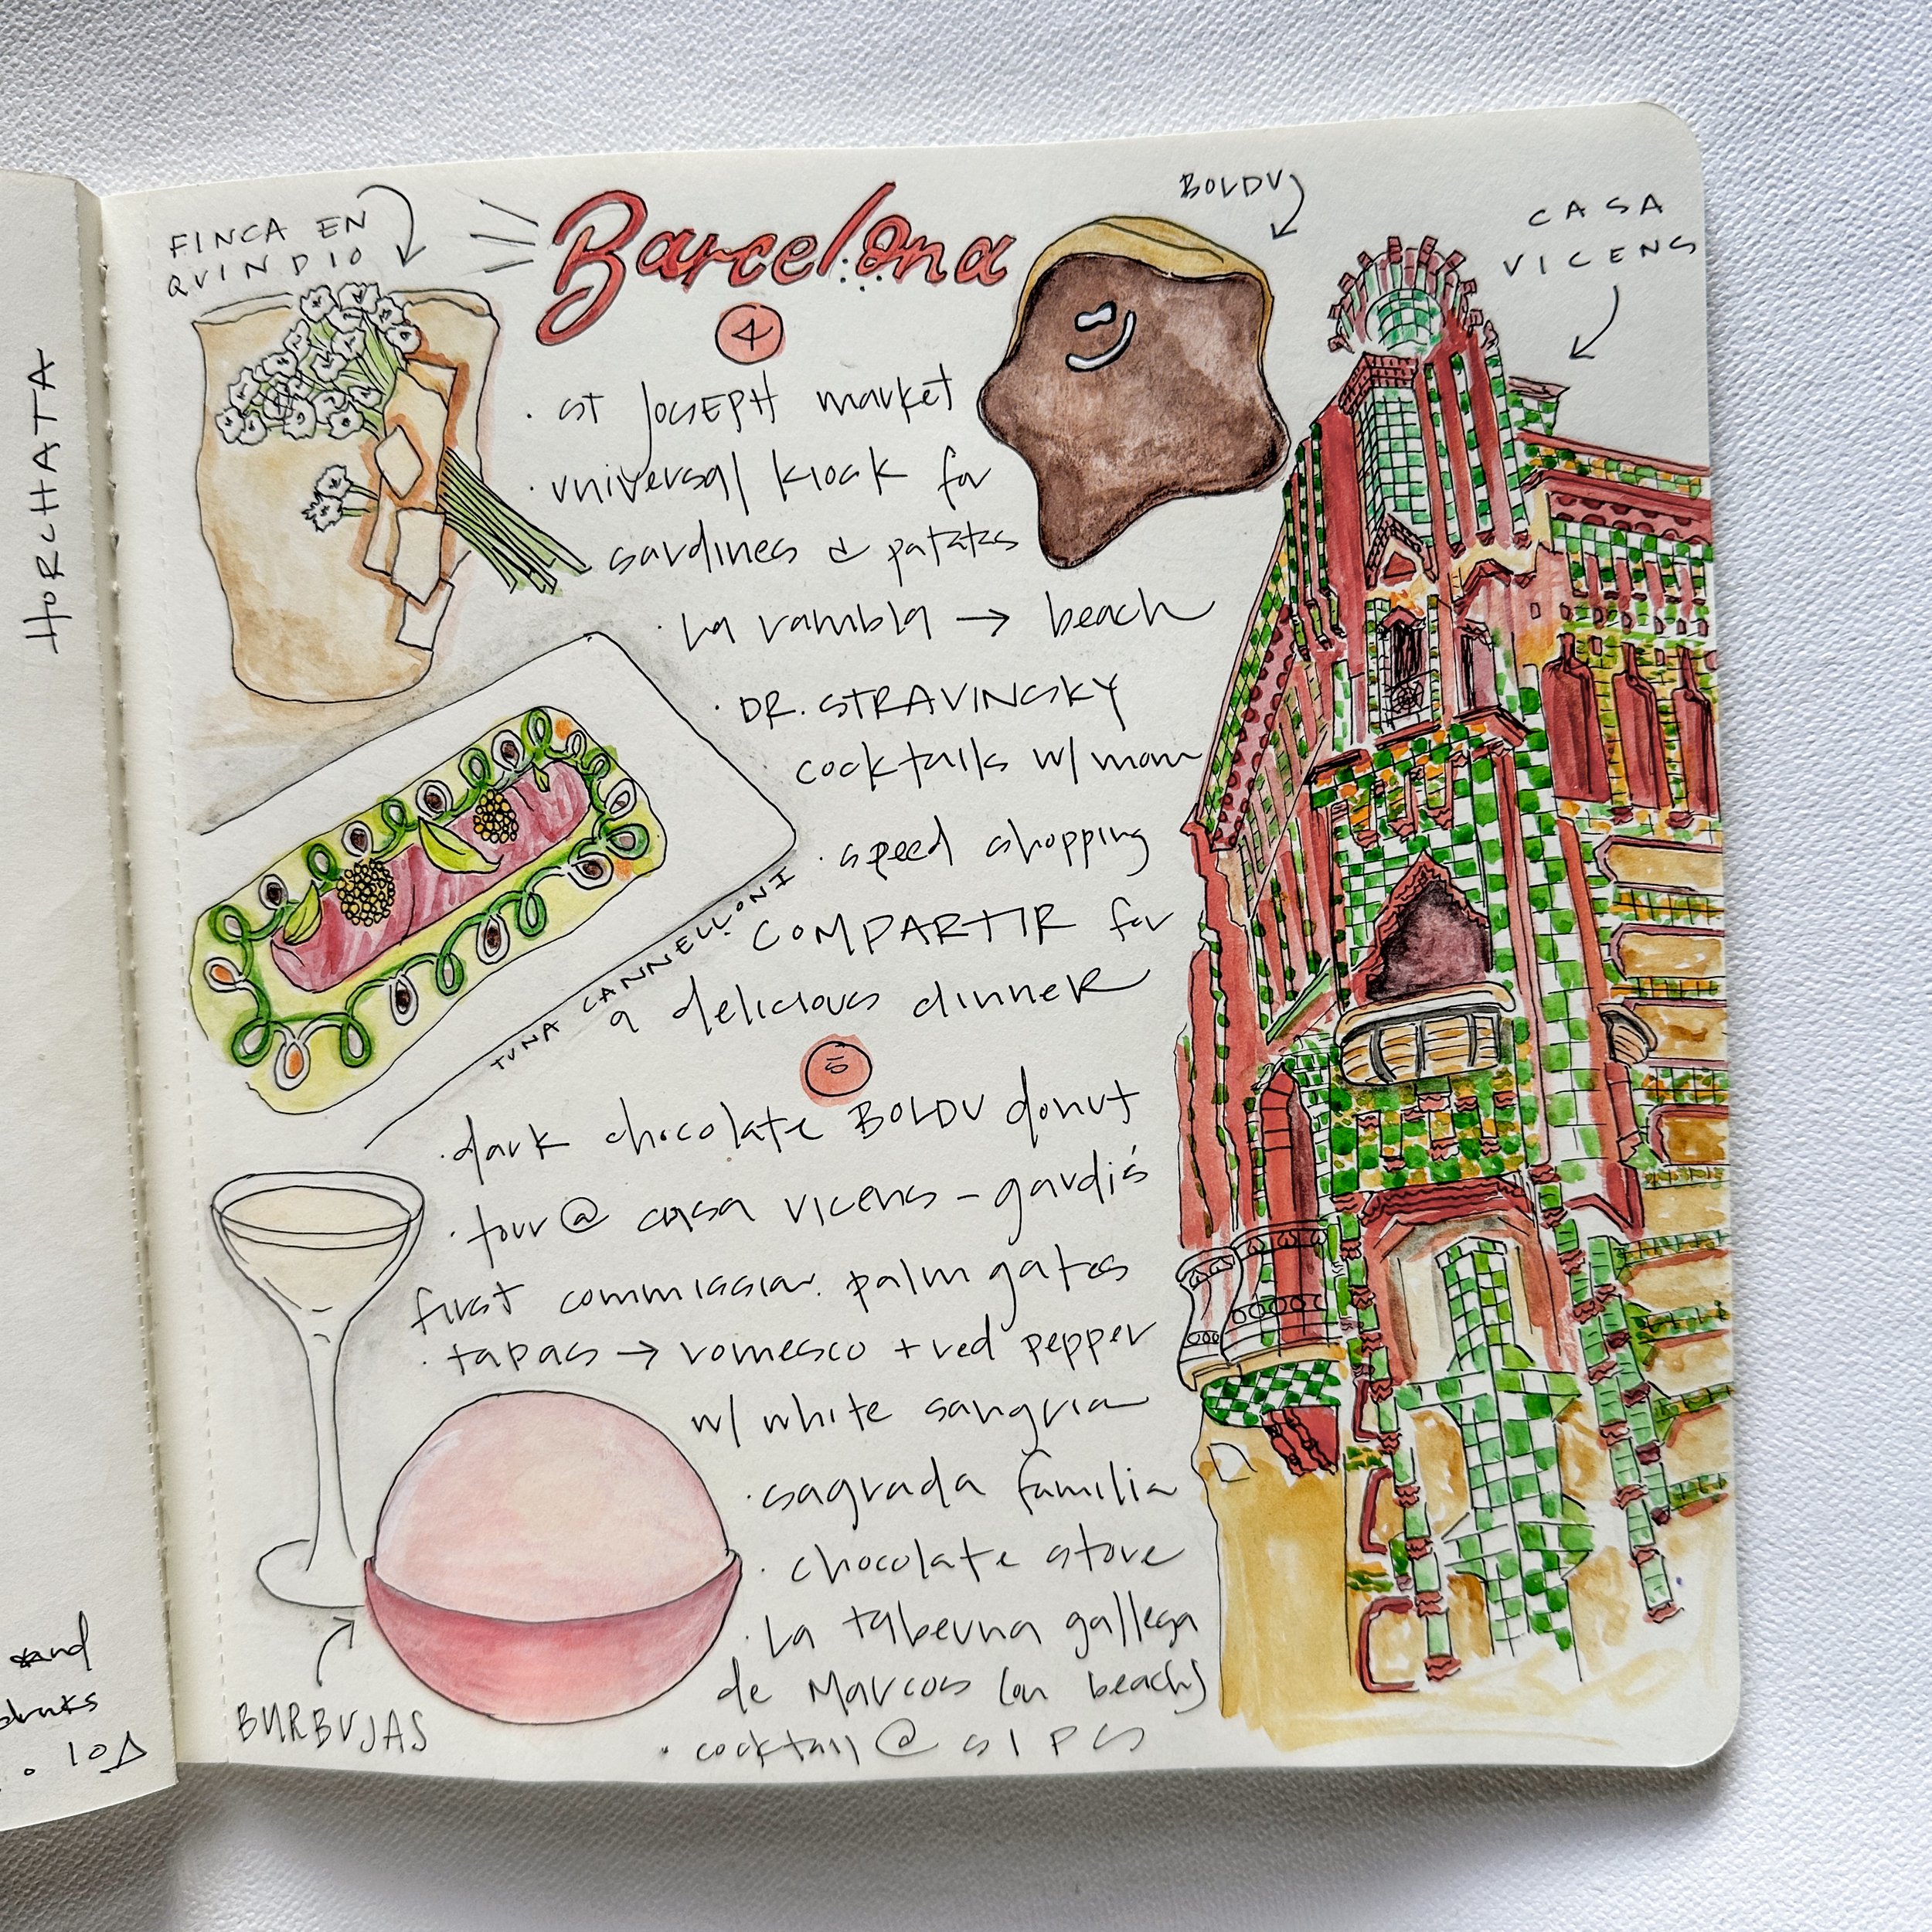 HORCHATA
and
drinks
10
FINCA EN
QUINDIO
Barcelona
BOLDU
CASA
VICENS
4
· ST JOSEPH market
· universal kiosk for
sardines & patatas
· La rambla → beach
· DR. STRAVINSKY
cocktails w/ mom
· speed shopping
· COMPARTIR for
a delicious dinner
TUNA CANNELLONI
5
· dark chocolate BOLDU donut
· tour @ casa vicens - gardi's
first commission. palm gates
· tapas → romesco + red pepper
w/ white sangria
· sagrada familia
· chocolate store
· La taberna gallega
de Marcos (on beach)
· cocktail @ SIPS
BURBUJAS